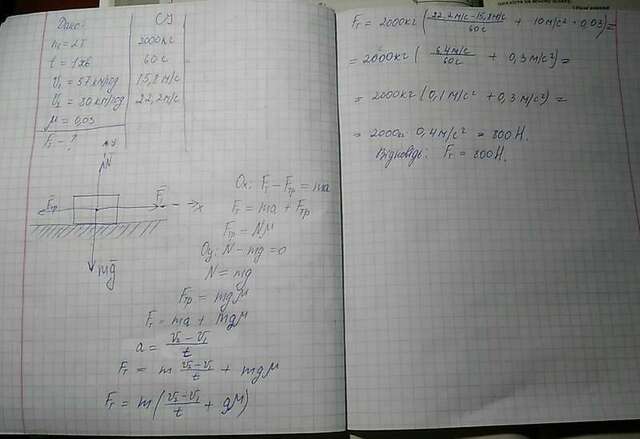 Дано: СИ
m = 2т 2000кг
t = 1хв 60с
v₁ = 57км/год 15,8м/с
v₂ = 80км/год 22,2м/с
μ = 0,03
Fт - ?
N
Fтр
F
x
mg
Ox: Fт - Fтр = ma
Fт = ma + Fтр
Fтр = Nμ
Oy: N - mg = 0
N = mg
Fтр = mgμ
Fт = ma + mgμ
a = (v₂ - v₁)/t
Fт = m (v₂ - v₁)/t + mgμ
Fт = m((v₂ - v₁)/t + gμ)
Fт = 2000кг((22,2м/с - 15,8м/с)/60с + 10м/с² · 0,03) =
= 2000кг(6,4м/с/60с + 0,3м/с²) =
= 2000кг(0,1м/с² + 0,3м/с²) =
= 2000 0,4м/с² = 800Н.
Відповідь: Fт = 800Н.